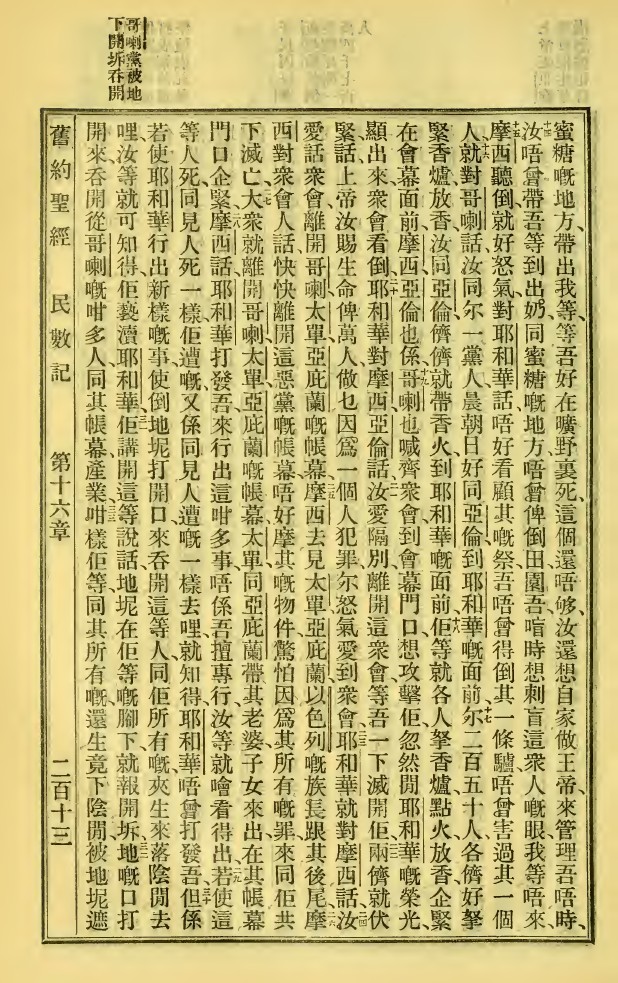 哥喇黨被地
下開坼吞開
蜜糖嘅地方、帶出我等、等吾好在曠野裏死、這個還唔够、汝還想自家做王帝、來管理吾唔時、
十四汝唔曾帶吾等到出奶同蜜糖嘅地方、唔曾俾倒田園吾、唷時想刺盲這衆人嘅眼、我等唔來、
十五摩西聽倒就好怒氣、對耶和華話、唔好看顧其嘅祭、吾唔曾得倒其一條驢、唔曾害過其一個
人、十六就對哥喇話、汝同尔一黨人、晨朝日好同亞倫到耶和華嘅面前、十七尔二百五十人、各儕好拏
緊香爐、放香、汝同亞倫儕儕就帶香火到耶和華嘅面前、十八佢等就各人拏香爐、點火放香、企緊
在會幕面前、摩西亞倫也係、十九哥喇也喊齊衆會到會幕門口、想攻擊佢、忽然間耶和華嘅榮光
顯出來、衆會看倒、二十耶和華對摩西亞倫話、二一汝愛隔別離開這衆會、等吾一下滅開佢、二二兩儕就伏
緊話、上帝、汝賜生命俾萬人、做乜因爲一個人犯罪、尔怒氣愛到衆會、二三耶和華就對摩西話、二四汝
愛話衆會離開哥喇太單亞庇蘭嘅帳幕、二五摩西去見太單亞庇蘭、以色列嘅族長跟其後尾、二六摩
西對衆會人話、快快離開這惡黨嘅帳幕、唔好摩其嘅物件、驚怕因爲其所有嘅罪、來同佢共
下滅亡、二七大衆就離開哥喇太單亞庇蘭嘅帳幕、太單同亞庇蘭帶其老婆子女來出、在其帳幕
門口企緊、二八摩西話、耶和華打發吾來行出這咁多事、唔係吾擅專行、汝等就噲看得出、二九若使這
等人死、同見人死一樣、佢遭嘅、又係同見人遭嘅一樣去哩、就知得耶和華唔曾打發吾、三十但係
若使耶和華行出新樣嘅事、使倒地坭打開口來吞開這等人、同佢所有嘅、夾生來落陰間去
哩、汝等就可知得佢褻瀆耶和華、三一佢講開這等說話、地坭在佢等嘅腳下就報開坼、三二地嘅口打
開來、吞開從哥喇嘅咁多人、同其帳幕產業、三三咁樣佢等同其所有嘅、還生竟下陰間、被地坭遮
舊約聖經 民數記 第十六章 二百十三